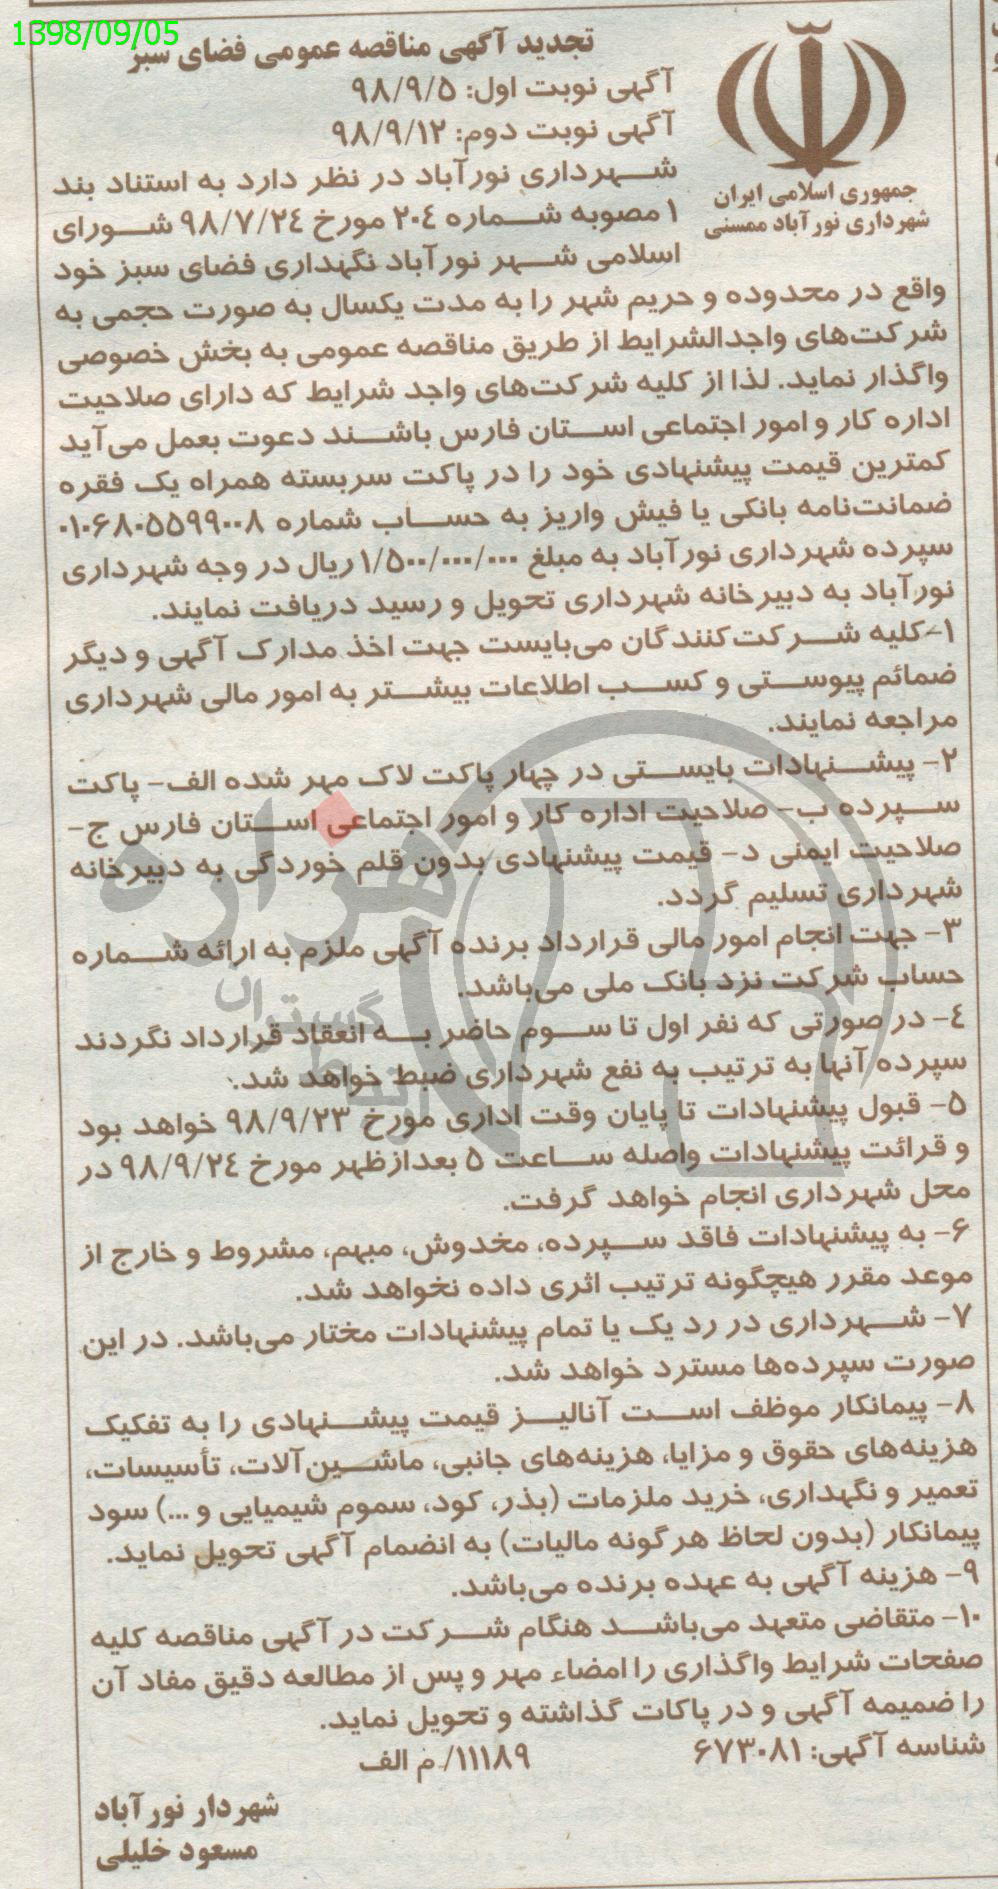 1398/09/05
تجدید آگهی مناقصه عمومی فضای سبز
آگهی نوبت اول: ۹۸/۹/۵
آگهی نوبت دوم: ۹۸/۹/۱۲
جمهوری اسلامی ایران
شهرداری نورآباد ممسنی
شهرداری نورآباد در نظر دارد به استناد بند
۱ مصوبه شماره ۲۰۴ مورخ ۹۸/۷/۲۴ شورای
اسلامی شهر نورآباد نگهداری فضای سبز خود
واقع در محدوده و حریم شهر را به مدت یکسال به صورت حجمی به
شرکت‌های واجدالشرایط از طریق مناقصه عمومی به بخش خصوصی
واگذار نماید. لذا از کلیه شرکت‌های واجد شرایط که دارای صلاحیت
اداره کار و امور اجتماعی استان فارس باشند دعوت بعمل می‌آید
کمترین قیمت پیشنهادی خود را در پاکت سربسته همراه یک فقره
ضمانت‌نامه بانکی یا فیش واریز به حساب شماره ۰۱۰۶۸۰۵۵۹۹۰۰۸
سپرده شهرداری نورآباد به مبلغ ۱/۵۰۰/۰۰۰/۰۰۰ ریال در وجه شهرداری
نورآباد به دبیرخانه شهرداری تحویل و رسید دریافت نمایند.
۱- کلیه شرکت‌کنندگان می‌بایست جهت اخذ مدارک آگهی و دیگر
ضمائم پیوستی و کسب اطلاعات بیشتر به امور مالی شهرداری
مراجعه نمایند.
۲- پیشنهادات بایستی در چهار پاکت لاک مهر شده الف- پاکت
سپرده ب- صلاحیت اداره کار و امور اجتماعی استان فارس ج-
صلاحیت ایمنی د- قیمت پیشنهادی بدون قلم خوردگی به دبیرخانه
شهرداری تسلیم گردد.
۳- جهت انجام امور مالی قرارداد برنده آگهی ملزم به ارائه شماره
حساب شرکت نزد بانک ملی می‌باشد.
۴- در صورتی که نفر اول تا سوم حاضر به انعقاد قرارداد نگردند
سپرده آنها به ترتیب به نفع شهرداری ضبط خواهد شد.
۵- قبول پیشنهادات تا پایان وقت اداری مورخ ۹۸/۹/۲۳ خواهد بود
و قرائت پیشنهادات واصله ساعت ۵ بعدازظهر مورخ ۹۸/۹/۲۴ در
محل شهرداری انجام خواهد گرفت.
۶- به پیشنهادات فاقد سپرده، مخدوش، مبهم، مشروط و خارج از
موعد مقرر هیچگونه ترتیب اثری داده نخواهد شد.
۷- شهرداری در رد یک یا تمام پیشنهادات مختار می‌باشد. در این
صورت سپرده‌ها مسترد خواهد شد.
۸- پیمانکار موظف است آنالیز قیمت پیشنهادی را به تفکیک
هزینه‌های حقوق و مزایا، هزینه‌های جانبی، ماشین‌آلات، تأسیسات،
تعمیر و نگهداری، خرید ملزمات (بذر، کود، سموم شیمیایی و ...) سود
پیمانکار (بدون لحاظ هرگونه مالیات) به انضمام آگهی تحویل نماید.
۹- هزینه آگهی به عهده برنده می‌باشد.
۱۰- متقاضی متعهد می‌باشد هنگام شرکت در آگهی مناقصه کلیه
صفحات شرایط واگذاری را امضاء مهر و پس از مطالعه دقیق مفاد آن
را ضمیمه آگهی و در پاکات گذاشته و تحویل نماید.
شناسه آگهی: ۶۷۳۰۸۱ ۱۱۱۸۹/م الف
شهردار نورآباد
مسعود خلیلی
هزاره
گستران